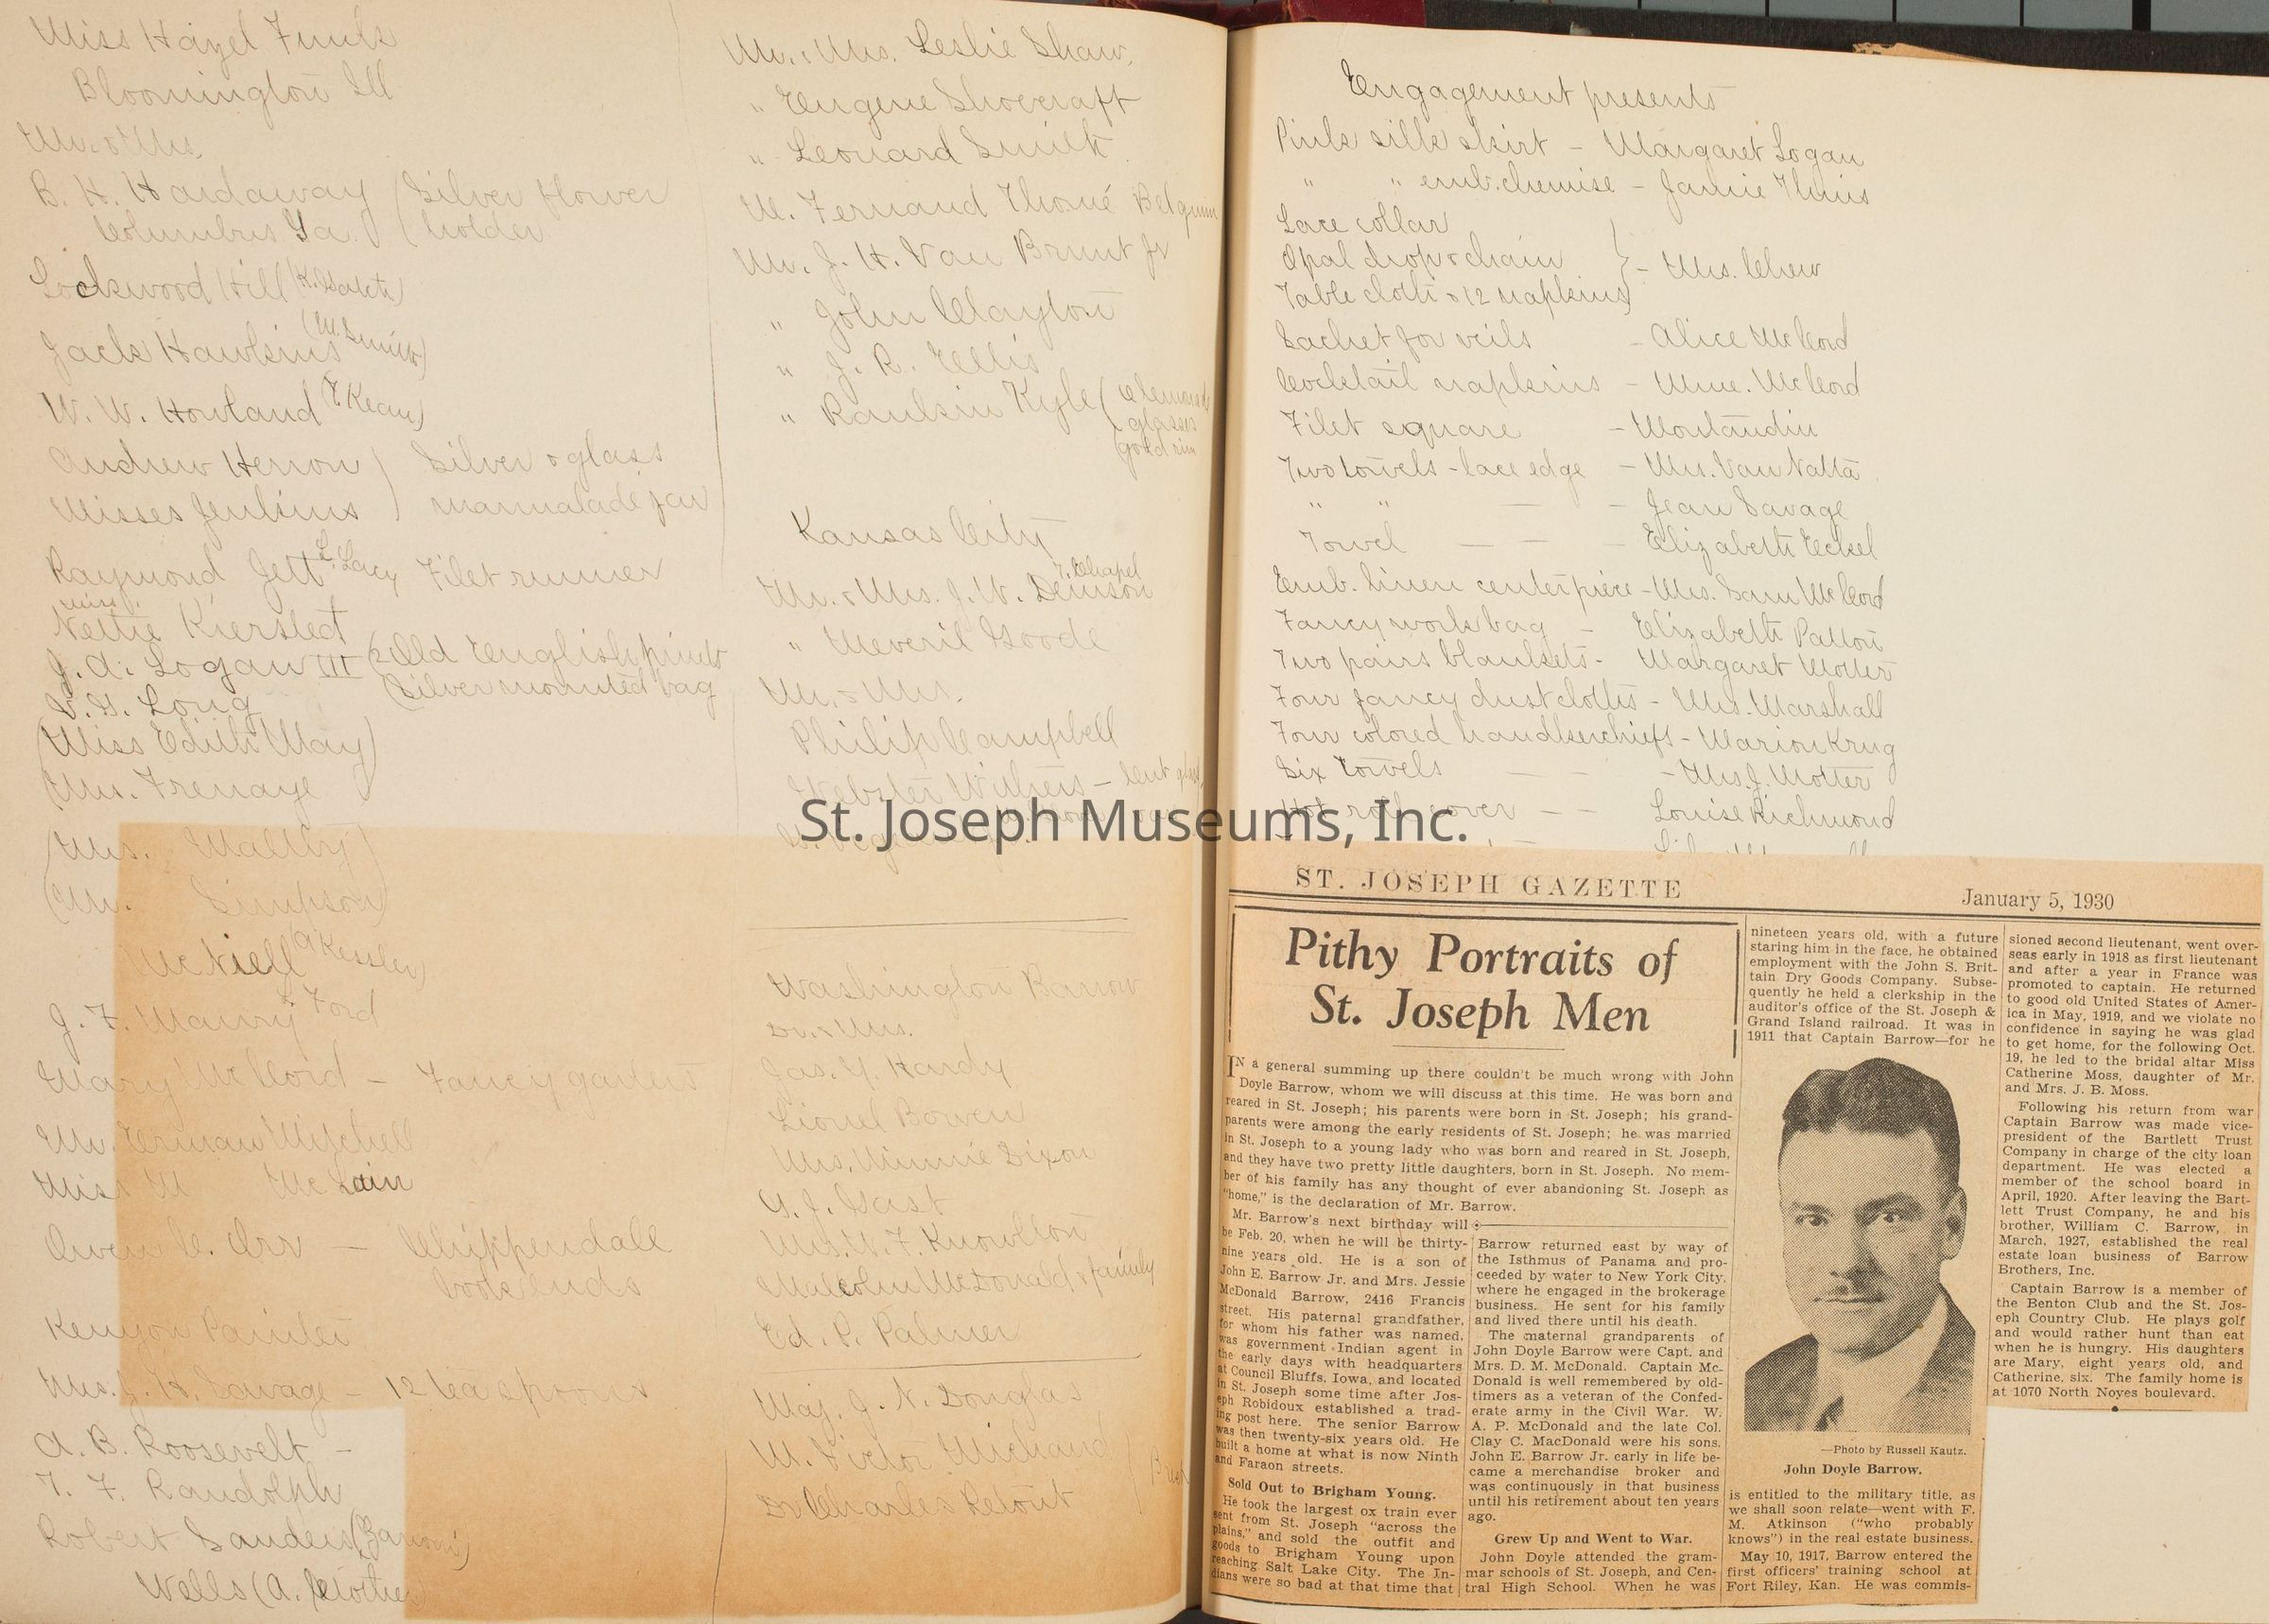 Miss Hazel Funk
Bloomington Ill
Mr. & Mrs.
B. H. Hardaway (Silver flower
Columbus Ga. (holder
Lockwood Hill
Jack Hawkins (M. Smith)
W. W. Howland (E Kean)
Andrew Herron ) Silver & glass
Misses Jenkins ) marmalade jar
Raymond Jett L. Lacy Filet runner
Miss
Nettie Kierstedt
J. A. Logan III (2 Old English prints
V. G. Long (Silver mounted bag
(Miss Edith May)
(Mrs. Frenaye
(Mrs. Maltby)
(Mr. Simpson)
McNiell (A Kessler)
J. F. Maury Ford
Mary McCord - Fancy garters
Mr. Erman Mitchell
Miss M McLain
Owen C. Orr - Chippendale
book ends
Kenyon Painter
Mrs. J. H. Savage - 12 tea spoons
A. B. Roosevelt -
T. F. Randolph
Robert Sanders
Wells
Mr. & Mrs. Leslie Shaw.
" Eugene Shoecraft
" Leonard Smith
M. Fernand Thomé Belgium
Mr. J. H. Van Brunt Jr
" John Clayton
" J. R. Ellis
" Kyle (
glasses
gold rim
Kansas City
T. Chapel
Mr. & Mrs. J. W. Denison
" Meveril Goode
Mr. & Mrs.
Philip Campbell
Webster Withers -
Washington Barrow
Dr. & Mrs.
Jas. Y. Hardy
Lionel Bowen
Mrs. Minnie Dixon
G. J. Gast
Mrs. W. F. Knowlton
Malcolm McDonald & family
Ed. P. Palmer
Maj. J. N. Douglas
M. Victor Michaud
Dr Charles Retout
Engagement presents
Pink silk skirt - Margaret Logan
" " emb. chemise - Jamie Thiis
Lace collar
Opal drop & chain } - Mrs. Chew
Table cloth & 12 napkins
Sachet for veils - Alice McCord
Cocktail napkins - Mme. McCord
Filet square - Montaudin
Two towels - lace edge - Mrs. Van Natta
" " - - Jean Savage
Towel - - - Elizabeth Eckel
Emb. linen centerpiece - Mrs. Sam McCord
Fancy work bag - Elizabeth Patton
Two pairs blankets - Margaret Motter
Four fancy dust cloths - Mrs. Marshall
Four colored handkerchiefs - Marion Krug
Six towels - - - Mrs. J. Motter
Hot roll cover - - Louise Richmond
St. Joseph Museums, Inc.
ST. JOSEPH GAZETTE January 5, 1930
Pithy Portraits of
St. Joseph Men
IN a general summing up there couldn't be much wrong with John
Doyle Barrow, whom we will discuss at this time. He was born and
reared in St. Joseph; his parents were born in St. Joseph; his grand-
parents were among the early residents of St. Joseph; he was married
in St. Joseph to a young lady who was born and reared in St. Joseph,
and they have two pretty little daughters, born in St. Joseph. No mem-
ber of his family has any thought of ever abandoning St. Joseph as
"home," is the declaration of Mr. Barrow.
Mr. Barrow's next birthday will
be Feb. 20, when he will be thirty-
nine years old. He is a son of
John E. Barrow Jr. and Mrs. Jessie
McDonald Barrow, 2416 Francis
street. His paternal grandfather,
for whom his father was named,
was government Indian agent in
the early days with headquarters
at Council Bluffs, Iowa, and located
in St. Joseph some time after Jos-
eph Robidoux established a trad-
ing post here. The senior Barrow
was then twenty-six years old. He
built a home at what is now Ninth
and Faraon streets.
Sold Out to Brigham Young.
He took the largest ox train ever
sent from St. Joseph "across the
plains," and sold the outfit and
goods to Brigham Young upon
reaching Salt Lake City. The In-
dians were so bad at that time that
Barrow returned east by way of
the Isthmus of Panama and pro-
ceeded by water to New York City,
where he engaged in the brokerage
business. He sent for his family
and lived there until his death.
The maternal grandparents of
John Doyle Barrow were Capt. and
Mrs. D. M. McDonald. Captain Mc-
Donald is well remembered by old-
timers as a veteran of the Confed-
erate army in the Civil War. W.
A. P. McDonald and the late Col.
Clay C. MacDonald were his sons.
John E. Barrow Jr. early in life be-
came a merchandise broker and
was continuously in that business
until his retirement about ten years
ago.
Grew Up and Went to War.
John Doyle attended the gram-
mar schools of St. Joseph, and Cen-
tral High School. When he was
nineteen years old, with a future
staring him in the face, he obtained
employment with the John S. Brit-
tain Dry Goods Company. Subse-
quently he held a clerkship in the
auditor's office of the St. Joseph &
Grand Island railroad. It was in
1911 that Captain Barrow—for he
—Photo by Russell Kautz.
John Doyle Barrow.
is entitled to the military title, as
we shall soon relate—went with F.
M. Atkinson ("who probably
knows") in the real estate business.
May 10, 1917, Barrow entered the
first officers' training school at
Fort Riley, Kan. He was commis-
sioned second lieutenant, went over-
seas early in 1918 as first lieutenant
and after a year in France was
promoted to captain. He returned
to good old United States of Amer-
ica in May, 1919, and we violate no
confidence in saying he was glad
to get home, for the following Oct.
19, he led to the bridal altar Miss
Catherine Moss, daughter of Mr.
and Mrs. J. B. Moss.
Following his return from war
Captain Barrow was made vice-
president of the Bartlett Trust
Company in charge of the city loan
department. He was elected a
member of the school board in
April, 1920. After leaving the Bart-
lett Trust Company, he and his
brother, William C. Barrow, in
March, 1927, established the real
estate loan business of Barrow
Brothers, Inc.
Captain Barrow is a member of
the Benton Club and the St. Jos-
eph Country Club. He plays golf
and would rather hunt than eat
when he is hungry. His daughters
are Mary, eight years old, and
Catherine, six. The family home is
at 1070 North Noyes boulevard.